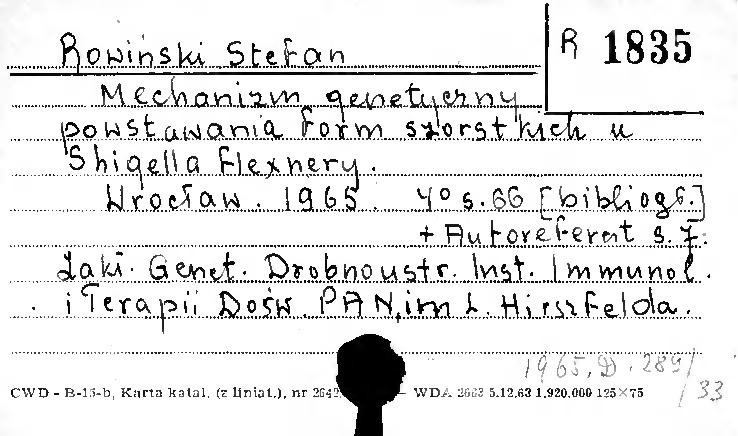 Rowiński Stefan
R 1835
Mechanizm genetyczny
powstawania form szorstkich u
Shigella flexnery.
Wrocław. 1965. 4° s. 66 [bibliogr.]
+ Autoreferat s. 7.
Zakł. Genet. Drobnoustr. Inst. Immunol.
i Terapii Dośw. PAN, im L. Hirszfelda.
1965. D. 289/33
CWD - B-15-b, Karta katal. (z liniat.), nr 2642 — WDA 2663 5.12.63 1.920.000 125×75